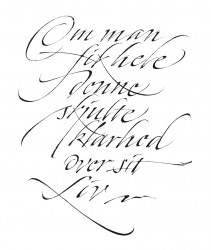 Om man
fik hele
denne
skjulte
klarhed
over sit
Liv